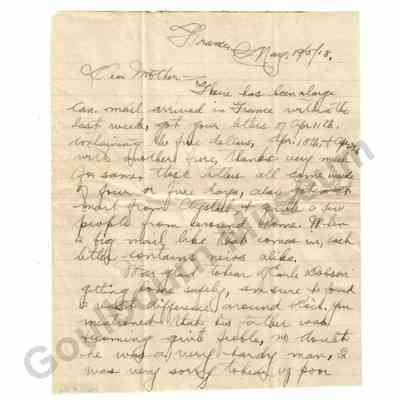 France, May, 19/18.
Dear Mother -
There has been a large
Can. mail arrived in France within the
last week, got your letters of Apr. 11th.
containing the five dollars, Apr. 18th,
with another five, thanks very much
for same. These letters all came inside
of four or five days, also got a
mail from & quite a few
people from around home. When
a big mail like that comes in, each
letter contains news alike.
Was glad to hear Uncle
getting home safely, am sure he found
a vast difference around You
mentioned that his father was
becoming quite feeble, no doubt
he was a very hardy man, I
was very sorry to hear of poor